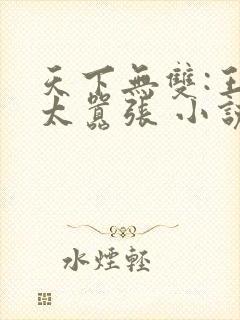 天下無雙:王
太囂張 小說
水煙輕